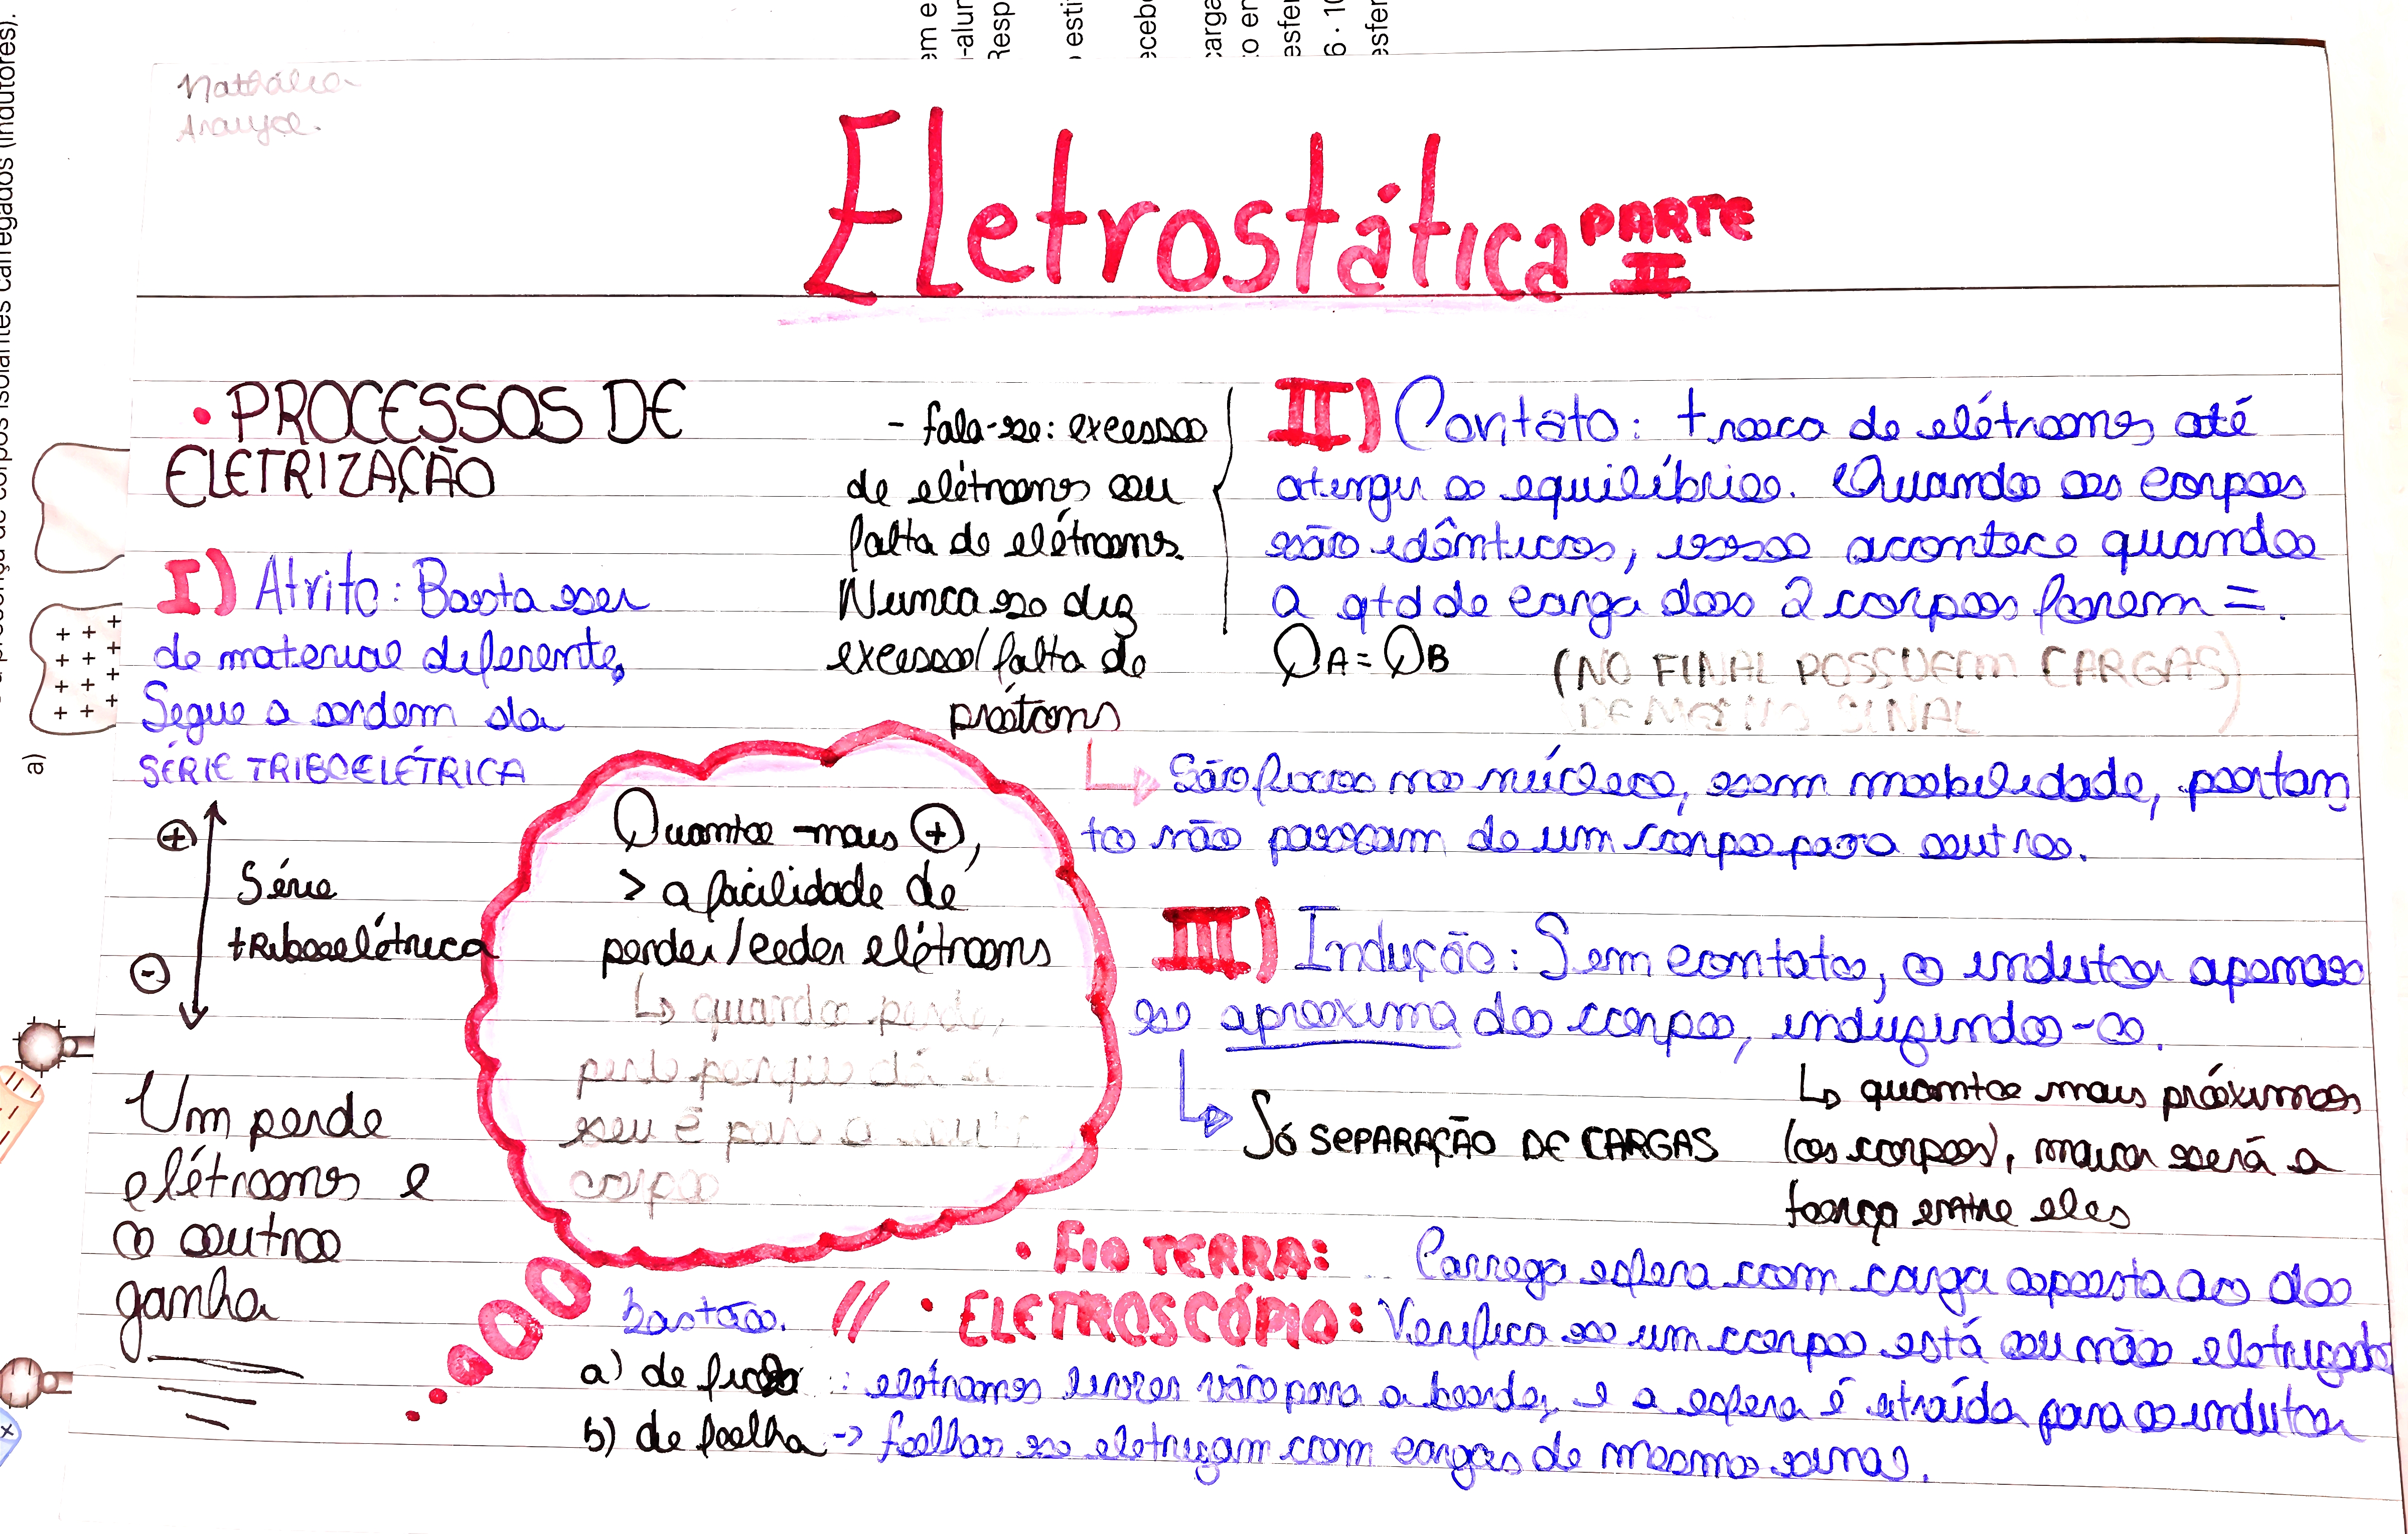 Nathália
Araujo.
Eletrostática PARTE
II
• PROCESSOS DE
ELETRIZAÇÃO
I) Atrito: Basta ser
de material diferente,
Segue a ordem da
SÉRIE TRIBOELÉTRICA
+
Série
triboelétrica
-
Um perde
elétrons e
o outro
ganha
Quanto mais +,
> a facilidade de
perder/ceder elétrons
↳ quando perde,
perde porque dá o
seu é para o outro
corpo
- fala-se: excesso
de elétrons ou
falta de elétrons.
Nunca se diz
excesso/falta de
prótons
II) Contato: troca de elétrons até
atingir o equilíbrio. Quando os corpos
são idênticos, isso acontece quando
a qtd de carga dos 2 corpos forem =.
QA = QB (NO FINAL POSSUEM CARGAS
DE MESMO SINAL)
↳ São fixos no núcleo, sem mobilidade, portan
to não passam de um corpo para outro.
III) Indução: Sem contato, o indutor apenas
se aproxima do corpo, induzindo-o.
↳ Só SEPARAÇÃO DE CARGAS
↳ quanto mais próximos
(os corpos), maior será a
força entre eles
• FIO TERRA: Carrega esfera com carga oposta ao do
bastão. // • ELETROSCÓPIO: Verifica se um corpo está ou não eletrizado
a) de : elétrons livres vão para a borda, e a esfera é atraída para o indutor
b) de folha -> folhas se eletrizam com cargas de mesmo sinal.
a)